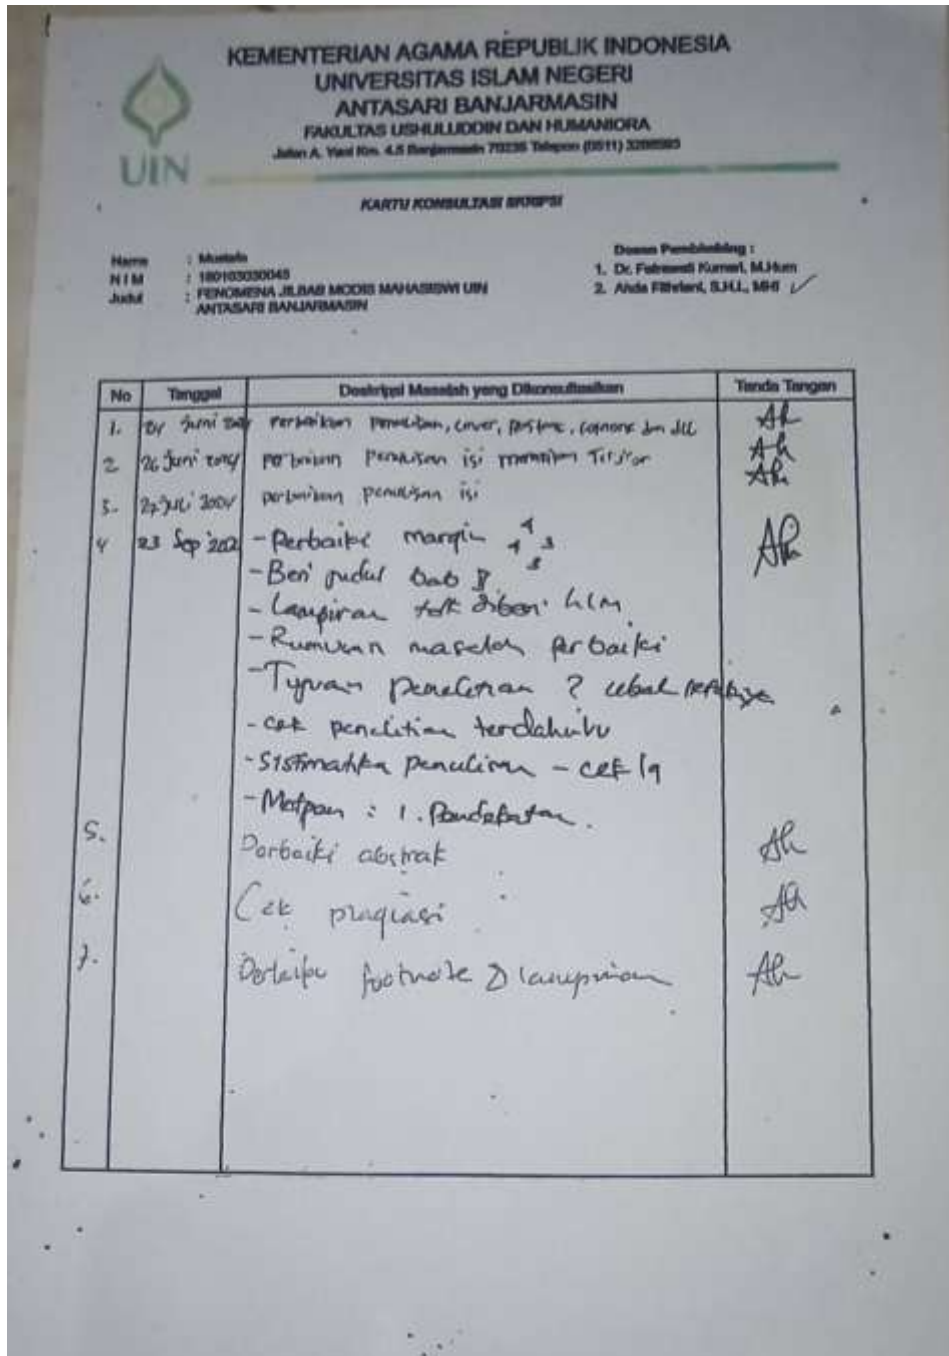 KEMENTERIAN AGAMA REPUBLIK INDONESIA
UNIVERSITAS ISLAM NEGERI
ANTASARI BANJARMASIN
FAKULTAS USHULUDDIN DAN HUMANIORA
Jalan A. Yani Km. 4.5 Banjarmasin 70235 Telepon (0511)
UIN
KARTU KONSULTASI SKRIPSI
Nama : Mustafa
N I M : 180103030045
Judul : FENOMENA JILBAB MODIS MAHASISWI UIN
ANTASARI BANJARMASIN
Dosen Pembimbing :
1. Dr. Fatrawati Kumari, M.Hum
2. Anda Fithriani, S.H.I., MHI
No Tanggal Deskripsi Masalah yang Dikonsultasikan Tanda Tangan
1. Juni perbaikan penulisan, cover, footnote dan dll
2 26 Juni perbaikan penulisan isi
3. Juli perbaikan penulisan isi
4 23 Sep 202 - Perbaiki margin 4 4 3 3
- Beri judul bab II
- Lampiran diberi hlm
- Rumusan masalah perbaiki
- Tujuan penelitian ?
- cek penelitian terdahulu
- Sistimatika penulisan - cek lg
- Metpen : 1. Pendekatan.
5. Perbaiki abstrak
6. Cek plagiasi
7. Perbaiki footnote & lampiran